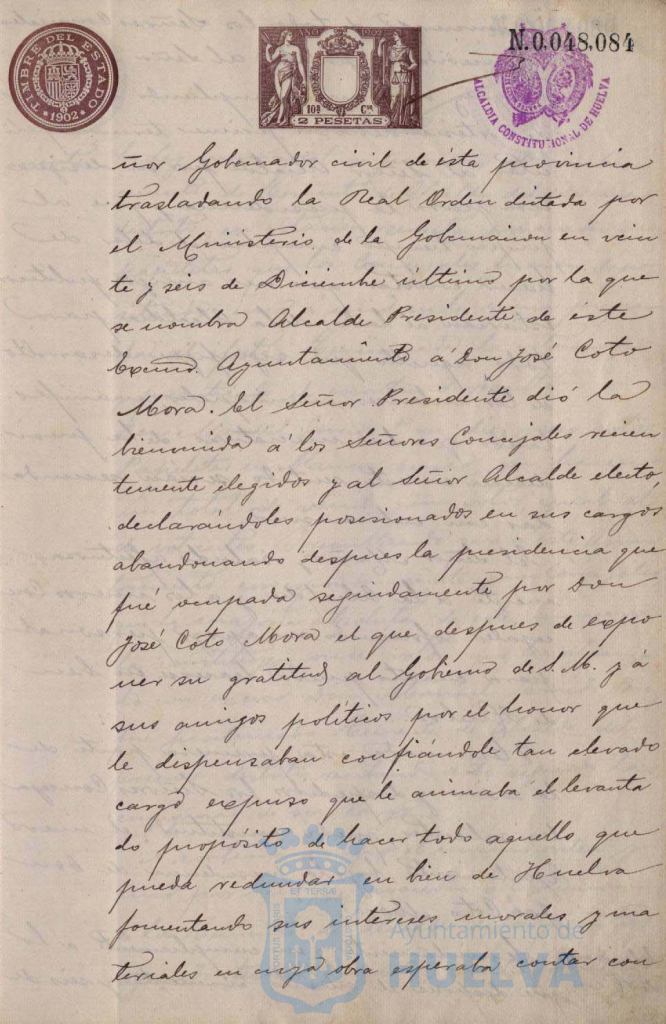 TIMBRE DEL ESTADO
1902
AÑO 1902
2 PESETAS
N.0.048,084
ALCALDIA CONSTITUCIONAL DE HUELVA
ñor Gobernador civil de ésta provincia
trasladando la Real Orden dictada por
el Ministerio de la Gobernación en vein
te y seis de Diciembre último por la que
se nombra Alcalde Presidente de este
Excmo. Ayuntamiento á Don José Coto
Mora. El Señor Presidente dió la
bienvenida á los Señores Concejales recien
temente elegidos y al Señor Alcalde electo,
declarándoles posesionados en sus cargos
abandonando despues la presidencia que
fué ocupada seguidamente por Don
José Coto Mora el que despues de expo
ner su gratitud al Gobierno de S. M. y á
sus amigos políticos por el honor que
le dispensaban confiándole tan elevado
cargo expuso que le animaba el levanta
do propósito de hacer todo aquello que
pueda redundar en bien de Huelva
fomentando sus intereses morales y ma
teriales en cuya obra esperaba contar con
Ayuntamiento de
HUELVA